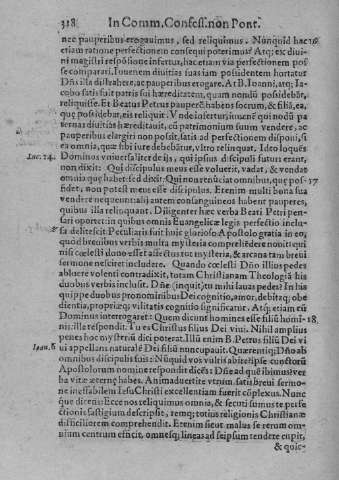 318 In Comm. Confess. non Pont.
nec pauperibus erogauimus, sed reliquimus. Nũnquid hac 16
etiam ratione perfectionem consequi poterimus? Atq; ex diui-
ni magistri respõsione infertur, hac etiam via perfectionem pos
se comparari. Iuuenem diuitias suas iam possidentem hortatur
Dñs illa distrahere, ac pauperibus erogare. At B. Ioanni, atq; Ia-
cobo satis fuit patris sui hæreditatem, quam nondũ posidebãt,
reliquisse. Et Beatus Petrus pauperẽ habens socrum, & filiã, ea,
quæ posidebat, eis reliquit. Vnde infertur, iuuenẽ qui nodũ pa
ternas diuitias hæreditauit, cũ patrimonium suum vendere, ac
pauperibus elargiri non possit, satis ad perfectionem disponi, si
ea omnia, quæ sibi iure debebãtur, vltro relinquat. Ideo loquẽs
Luc. 14. Dominus vniuersaliter de ijs, qui ipsius discipuli futuri erant,
non dixit: Qui discipulus meus esse voluerit, vadat, & vendat
omnia quæ habet: sed dixit: Qui non renũciat omnibus, quæ pos- 17
sidet, non potest meus esse discipulus. Etenim multi bona sua
vendere nequeunt: alij autem consanguineos habent pauperes,
quibus illa relinquant. Diligenter hæc verba Beati Petri pen-
sari oportet: in quibus omnis Euangelicæ legis perfectio inclu-
sa delitescit. Peculiaris fuit huic glorioso Apostolo gratia in eo,
quòd breuibus verbis multa mysteria comprehẽdere nouit: qui
nisi cœlesti dono esset affectus tot mysteria, & arcana tam breui
sermone nesciret includere. Quando cœlesti Dño illius pedes
abluere volenti contradixit, totam Christianam Theologiã his
duobus verbis inclusit. Dñe (inquit,) tu mihi lauas pedes? In his
quippe duobus pronominibus Dei cognitio, amor, debitaq; obe
dientia, propriæq; vilitatis cognitio significatur. Atq; etiam cũ
Dominus interrogaret: Quem dicunt homines esse filiũ homi- 18
nis: ille respondit. Tu es Christus filius Dei viui. Nihil amplius
penes hoc mysteriũ dici poterat. Illũ enim B. Petrus filiũ Dei vi
Ioan. 6 ui appellans naturalẽ Dei filiũ nuncupauit. Quærentiq; Dño ab
omnibus discipulis suis: Nũquid vos vultis abire? ipse cunctorũ
Apostolorum nomine respondit dicẽs: Dñe ad quẽ ibimus? ver
ba vitæ æternę habes. Animaduertite venim. satis breui sermo-
ne ineffabilem Iesu Christi excellentiam fuerit cõplexus. Nunc
quæ dicens: Ecce nos reliquimus omnia, & secuti sumus te perfe-
ctionis fastigium descripsit, remq; totius religionis Christianæ
difficiliorem comprehendit. Etenim sicut malus se rerum om-
nium centrum efficit, omnesq; lineas ad seipsum tendere cupit,
& quic-